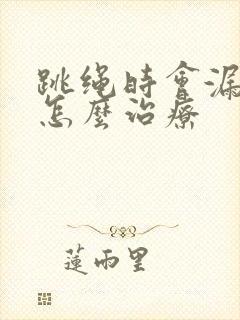 跳绳时會漏
怎麼治療
蓮雨里